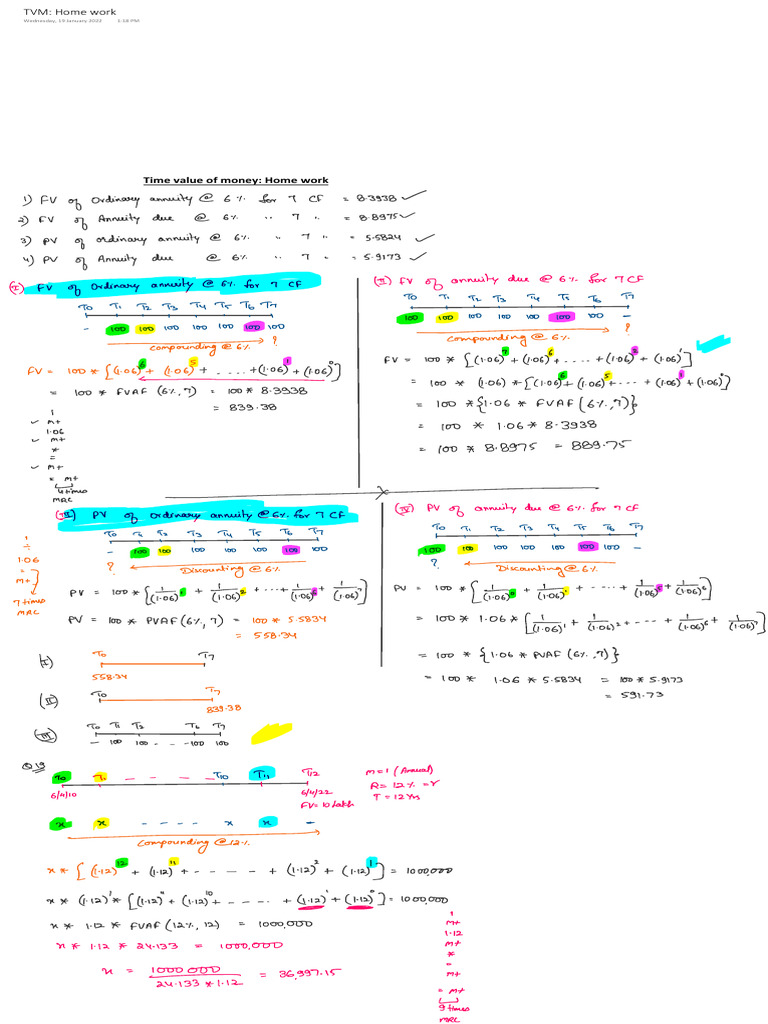 TVM: Home work
Wednesday, 19 January 2022 1:18 PM
Time value of money: Home work
1) FV of Ordinary annuity @ 6% for 7 CF = 8.3938 ✓
2) FV of Annuity due @ 6% " 7 " = 8.8975 ✓
3) PV of ordinary annuity @ 6% " 7 " = 5.5824 ✓
4) PV of Annuity due @ 6% " 7 " = 5.9173 ✓
(I) FV of Ordinary annuity @ 6% for 7 CF
T0 T1 T2 T3 T4 T5 T6 T7
- 100 100 100 100 100 100 100
Compounding @ 6% ?
FV = 100 * [(1.06)^6 + (1.06)^5 + ..... + (1.06)^1 + (1.06)^0]
= 100 * FVAF (6%, 7) = 100 * 8.3938
= 839.38
1
✓ M+
1.06
✓ M+
*
=
✓ M+
= M+
6 times
MRC
(II) FV of annuity due @ 6% for 7 CF
T0 T1 T2 T3 T4 T5 T6 T7
100 100 100 100 100 100 100 -
Compounding @ 6% ?
FV = 100 * [(1.06)^7 + (1.06)^6 + ..... + (1.06)^2 + (1.06)^1]
= 100 * (1.06) * [(1.06)^6 + (1.06)^5 + ... + (1.06)^1 + (1.06)^0]
= 100 * {1.06 * FVAF (6%, 7)}
= 100 * 1.06 * 8.3938
= 100 * 8.8975 = 889.75
(III) PV of ordinary annuity @ 6% for 7 CF
T0 T1 T2 T3 T4 T5 T6 T7
- 100 100 100 100 100 100 100
? Discounting @ 6%
PV = 100 * [1/(1.06)^1 + 1/(1.06)^2 + ... + 1/(1.06)^6 + 1/(1.06)^7]
PV = 100 * PVAF (6%, 7) = 100 * 5.5834
= 558.34
1
÷
1.06
=
M+
7 times
MRC
(IV) PV of annuity due @ 6% for 7 CF
T0 T1 T2 T3 T4 T5 T6 T7
100 100 100 100 100 100 100 -
? Discounting @ 6%
PV = 100 * [1/(1.06)^0 + 1/(1.06)^1 + ..... + 1/(1.06)^5 + 1/(1.06)^6]
= 100 * 1.06 * [1/(1.06)^1 + 1/(1.06)^2 + ... + 1/(1.06)^6 + 1/(1.06)^7]
= 100 * {1.06 * PVAF (6%, 7)}
= 100 * 1.06 * 5.5834 = 100 * 5.9173
= 591.73
(I) T0 T7
558.34
(II) T0 T7
839.38
(III) T0 T1 T2 T6 T7
- 100 100 - - - 100 100
Q 19
T0 T1 - - - - T10 T11 T12
6/4/10 6/4/22
FV = 10 Lakh
M = 1 (Annual)
R = 12% = r
T = 12 Yrs
x x - - - - x x -
Compounding @ 12%
x * [(1.12)^12 + (1.12)^11 + - - - - - + (1.12)^2 + (1.12)^1] = 1000,000
x * (1.12)^1 * [(1.12)^11 + (1.12)^10 + ..... + (1.12)^1 + (1.12)^0] = 1000,000
x * 1.12 * FVAF (12%, 12) = 1000,000
x * 1.12 * 24.133 = 1000,000
x = 1000 000 / 24.133 * 1.12 = 36,997.15
1
M+
1.12
M+
*
=
M+
= M+
9 times
MRC